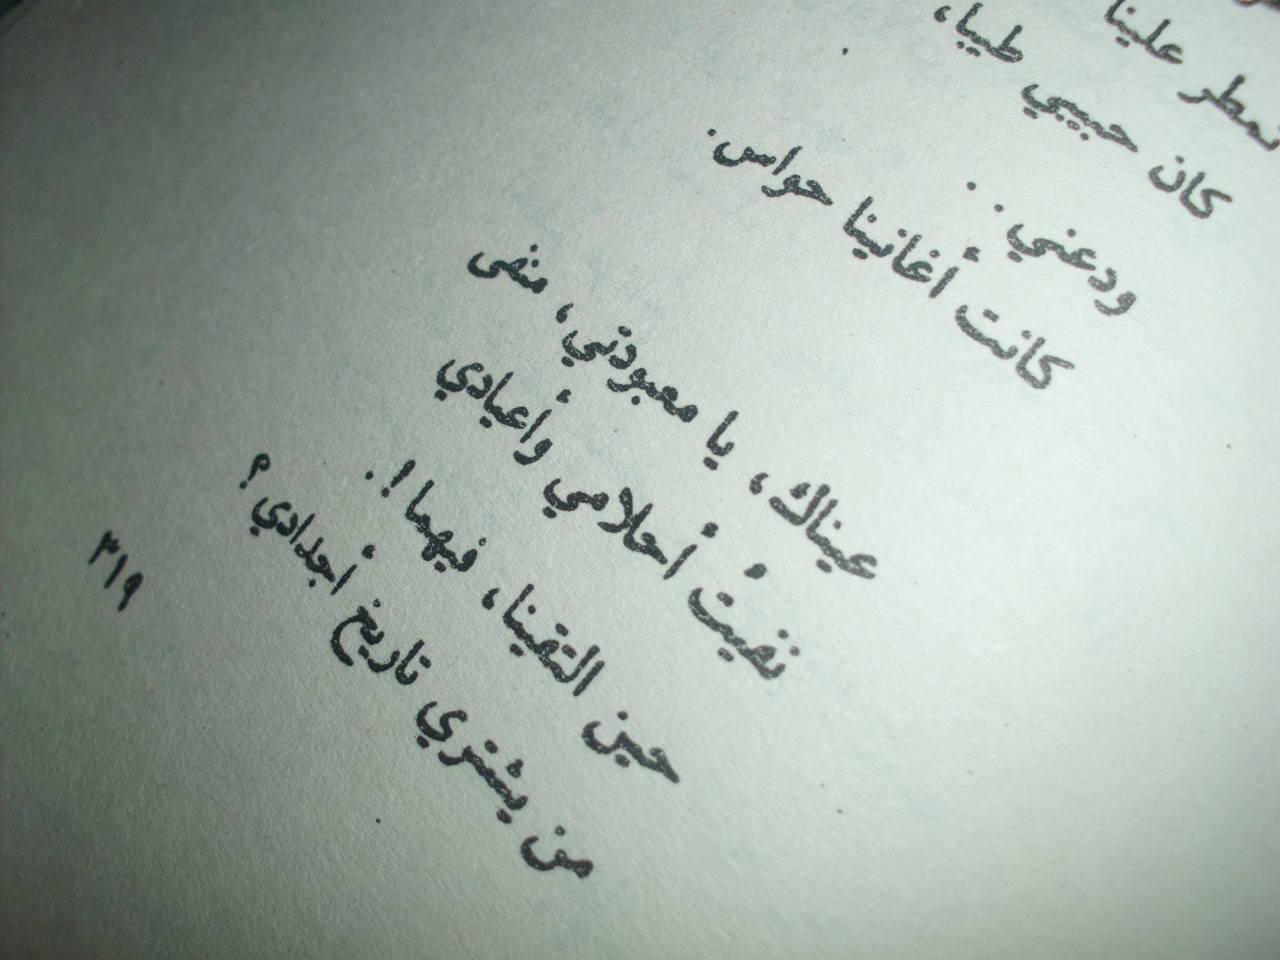 تمطر علينا
كان حبيبي طيبا،
ودعني . .
كانت أغانينا حواس.
عيناك، يا معبودتي، منفى
نفيتُ أحلامي وأعيادي
حين التقينا، فيهما!.
من يشتري تاريخ أجدادي؟
٣١٩